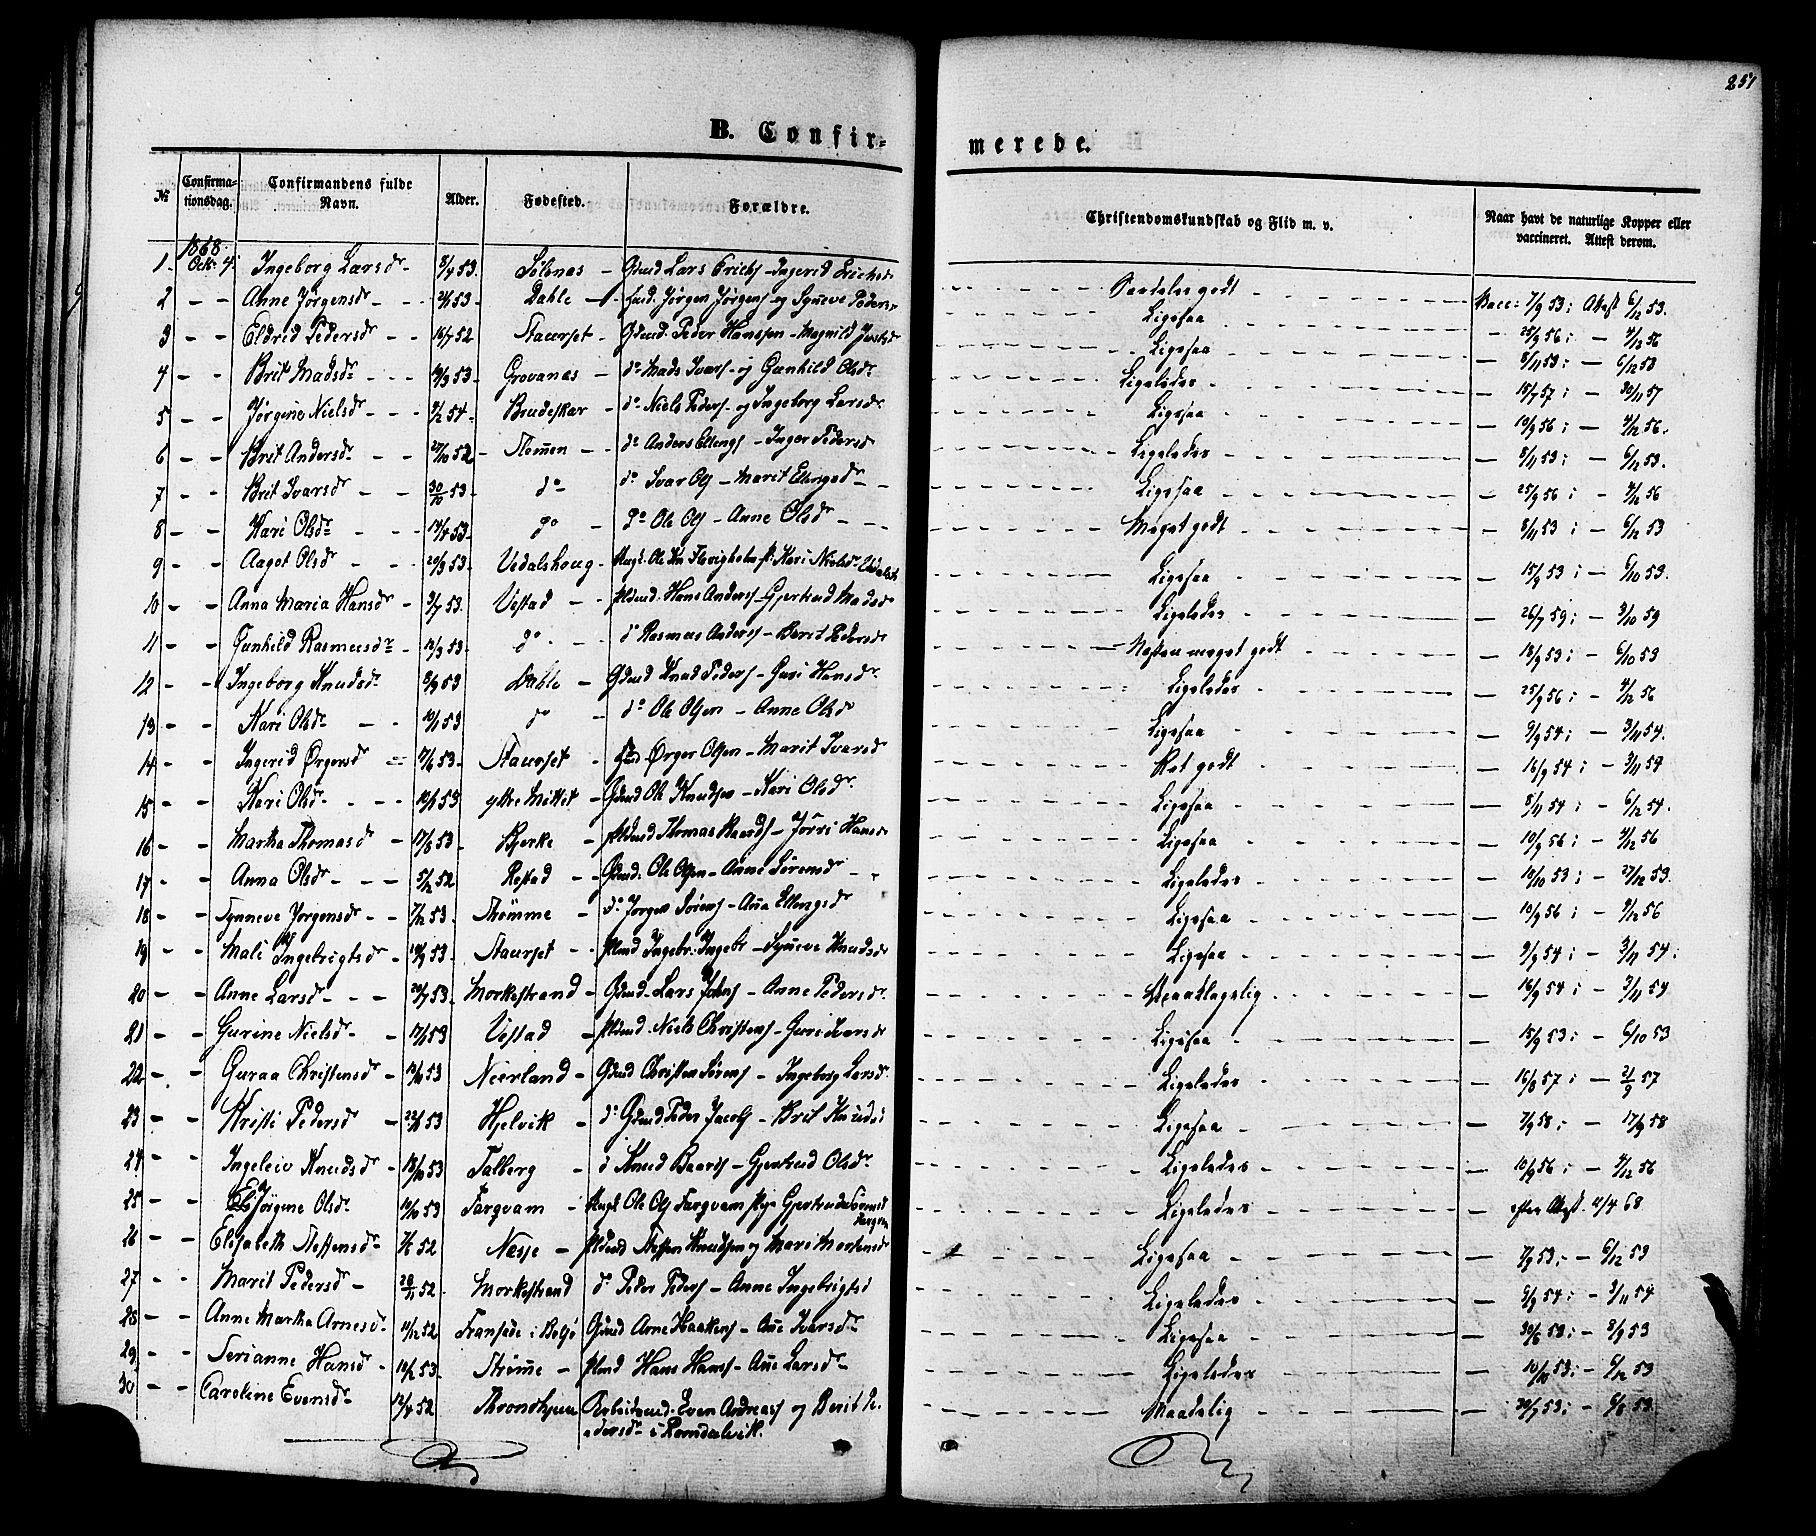 251
B. Confir-
merede.
№ Confirma-tionsdag. Confirmandens fulde Navn. Alder. Fødested. Forældre. Christendomskundskab og Flid m. v. Naar havt de naturlige Kopper eller vaccineret. Attest derom.
1868.
1 Octr 4. Ingeborg Larsdr 8/4 53. Sølsnæs Gdmd Lars Erichs - Ingerid Erichsdr Særdeles godt Vacc: 7/9 53; Attest 6/12 53.
2 - - Anne Jørgensdr 53. Dahle - Jørgen Jørgens og Synneve Peders Ligesaa - 25/9 56; - 4/12 56
3 - - Eldrid Pedersdr 16/7 52 Staurset Gdmd. Peder Hanssen - Magnild Ligesaa - 8/11 53; - 6/12 53
4 - - Brit Madsdr 53. Grovanæs - do Mads Ivars - og Gunhild Olsdr Ligeledes - 18/7 57; - 30/11 57
5 - - Jørgine Nielsdr 2/2 54. Brudeskar - do Niels Peders - og Ingeborg Larsdr Ligesaa - 10/9 56; - 4/12 56.
6 - - Brit Andersdr 27/10 52 Stommen - do Anders Ellengs - Inger Pedersd Ligeledes - 8/11 53; - 6/12 53.
7 - - Brit Ivarsdr 30/10 53. do do Ivar Ols - Marit Ellengsd Ligesaa - 25/9 56; - 4/12 56
8 - - Kari Olsdr 14/4 53. do do Ole Ols - Anne Olsdr Meget godt - 8/11 53; - 6/12 53
9 - - Aagot Olsdr 20/3 53. Vedalshoug - Ole Kari Nielsdr Ligesaa - 15/9 53; - 6/10 53.
10 - - Anna Maria Hansdr 3/7 53. Vestad - Pldmd. Hans Anders - Gjertrud Madsdr Ligeledes - 26/7 59; - 3/10 59
11 - - Gunhild Rasmusdr 12/3 53. do do Rasmus Anders - Berit Pedersdr Næsten meget godt - 18/9 53; - 6/10 53
12 - - Ingeborg Knudsdr 8/9 53 Dahle - Gdmd Knud Peders - Guri Hansdr Ligeledes - 25/9 56; - 4/12 56
13 - - Kari Olsdr 10/1 53 do do Ole Olsen - Anne Olsdr Ligesaa - 9/9 54; - 3/11 54.
14 - - Ingerid Ørgersdr 17/6 53. Staurset - Ørger Olsen - Marit Ivarsdr Ret godt - 16/9 54; - 3/11 54
15 - - Kari Olsdr 53 ytre Mittet - Gdmd Ole Knudsen - Kari Olsdr Ligesaa - 8/11 54; - 6/12 54.
16 - - Martha Thomasd 17/8 53. Bjerke - Pldmd Thomas - Hansdr Ligesaa - 10/9 56; - 4/12 56
17 - - Anna Olsdr 5/12 52 Restad - Gdmd. Ole Olsen - Anne Sørensd Ligeledes - 10/10 53; - 27/12 53.
18 - - Synneve Jørgensdr 7/12 53. Strømme - do Jørgen Sørens - Ana Ellengsd Ligesaa - 10/9 56; - 4/12 56
19 - - Mali Ingebrigtsd 53. Staurset - Pldmd Ingebr. Ingebr - Synneve Knudsdr Ligesaa - 9/9 54; - 3/11 54.
20 - - Anne Larsdr 20/7 53. Morkestrand - Gdmd. Lars Johns - Anne Pedersdr Upaaklagelig - 16/9 54; - 3/11 54
21 - - Gurine Nielsdr 17/1 53 Vestad - Pldmd. Niels Christens - Guri Ivarsdr Ligesaa - 15/9 53; - 6/10 53
22 - - Guraa Christensdr 53 Neerland - Gdmd Christen Sørens - Ingeborg Larsdr Ligeledes - 16/8 57; - 21/9 57
23 - - Kristi Pedersd 53 Hjelvik - do Gdmd Peder Jacobs - Brit Knudsd Ligesaa - 7/9 58; - 17/9 58
24 - - Ingeleiv Knudsdr 53 Talberg - do Knud Baards - Gjertrud Olsdr Ligeledes - 10/9 56; - 4/12 56
25 - - Jørgine Olsdr 10/10 53 Targvam - Ole Ols Targvam Gjertrud Ligeledes - efter Attest 11/4 68
26 - - Elisabeth Steffensdr 52 Næsje - Pldmd Steffen Knudsen og Mari Mortensd Ligesaa - 53; - 6/12 53
27 - - Marit Pedersdr 28/11 52. Morkestrand do Peder Peders - Anne Ingebrigtsd Ligeledes - 54; - 3/11 54
28 - - Anne Martha Arnesd 11/12 52 Fransæde i Bolsø Gdmd Arne Haakens - Ane Ivarsdr Ligesaa - 30/6 53; - 8/9 53
29 - - Serianne Hansdr 10/2 53. Strømme - Pldmd Hans Hans - Ane Larsdr Ligeledes - 10/10 53; - 6/12 53
30 - - Caroline Evensdr 52 Throndhjem Arbeidsmd. Even Andreas og Berit Pedersdr i Romdalsvik. Maadelig - 53; - 53